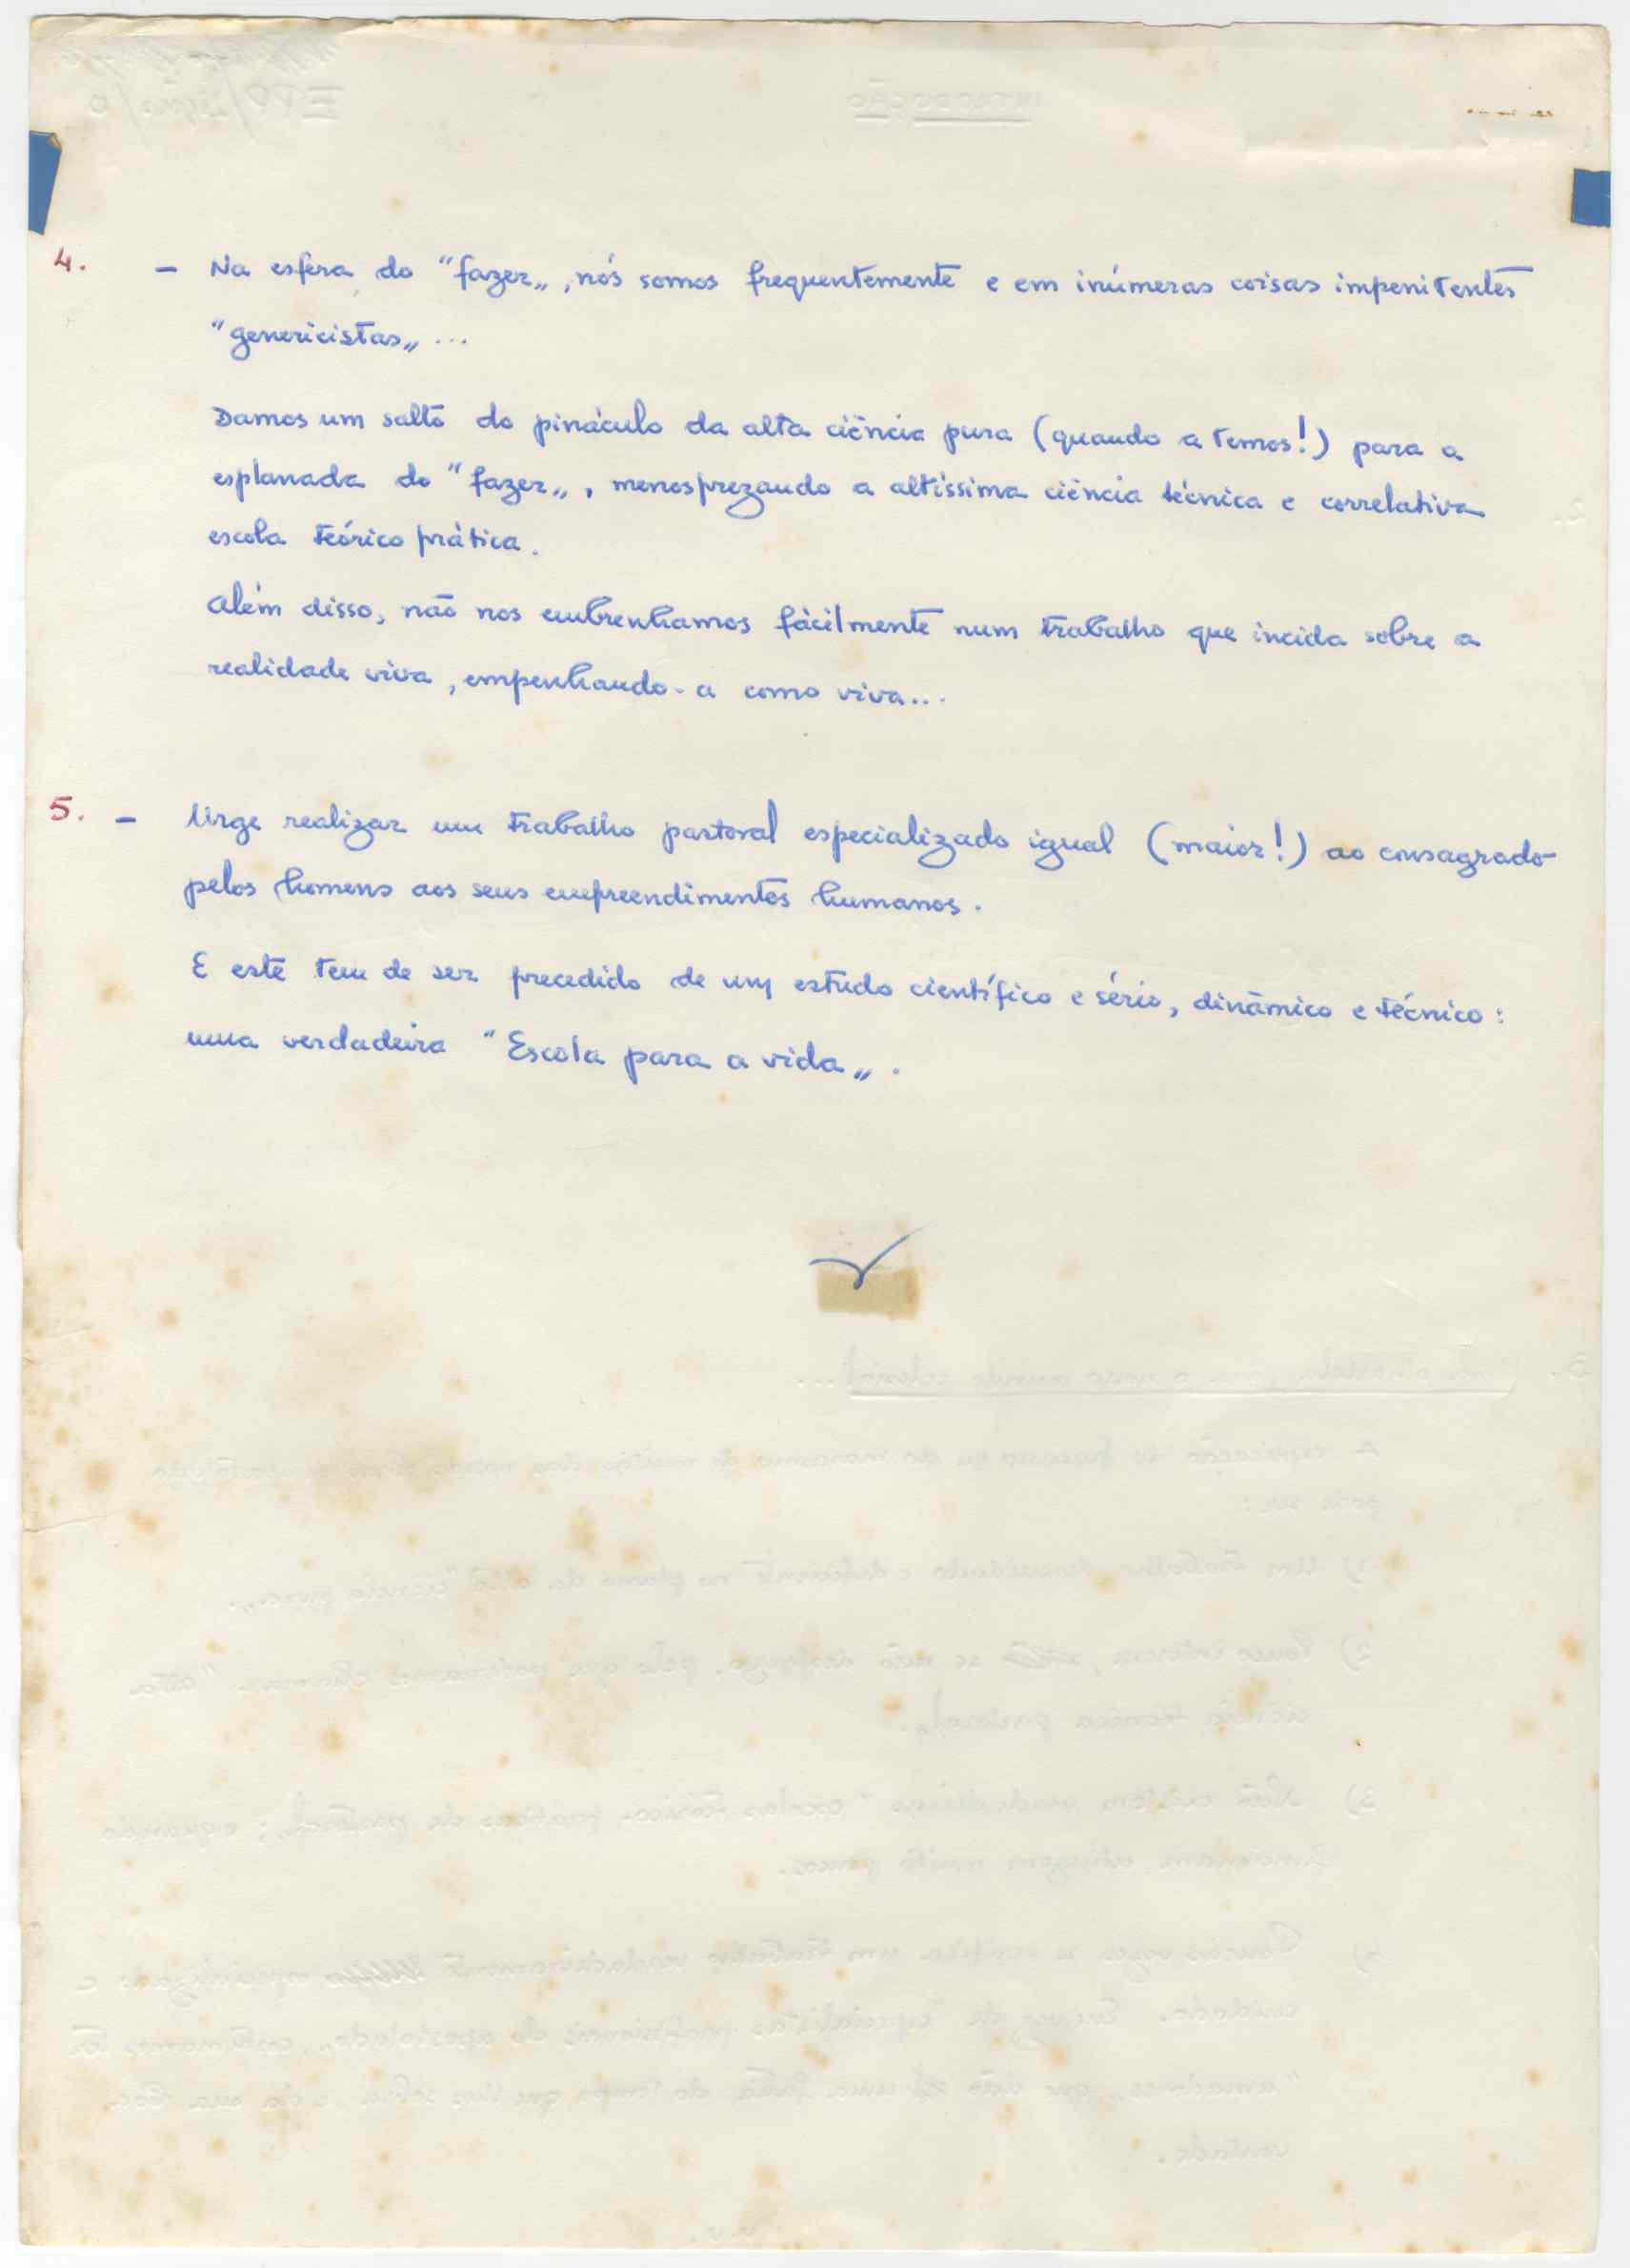 4. - Na esfera do "fazer„, nós somos frequentemente e em inúmeras coisas impenitentes
"genericistas„ ...
Damos um salto do pináculo da alta ciência pura (quando a temos!) para a
esplanada do "fazer„, menosprezando a altíssima ciência técnica e correlativa
escola teórico prática.
Além disso, não nos embrenhamos fàcilmente num trabalho que incida sobre a
realidade viva, empenhando-a como viva...
5. - Urge realizar um trabalho pastoral especializado igual (maior!) ao consagrado
pelos homens aos seus empreendimentos humanos.
E este tem de ser precedido de um estudo científico e sério, dinâmico e técnico:
uma verdadeira "Escola para a vida„.